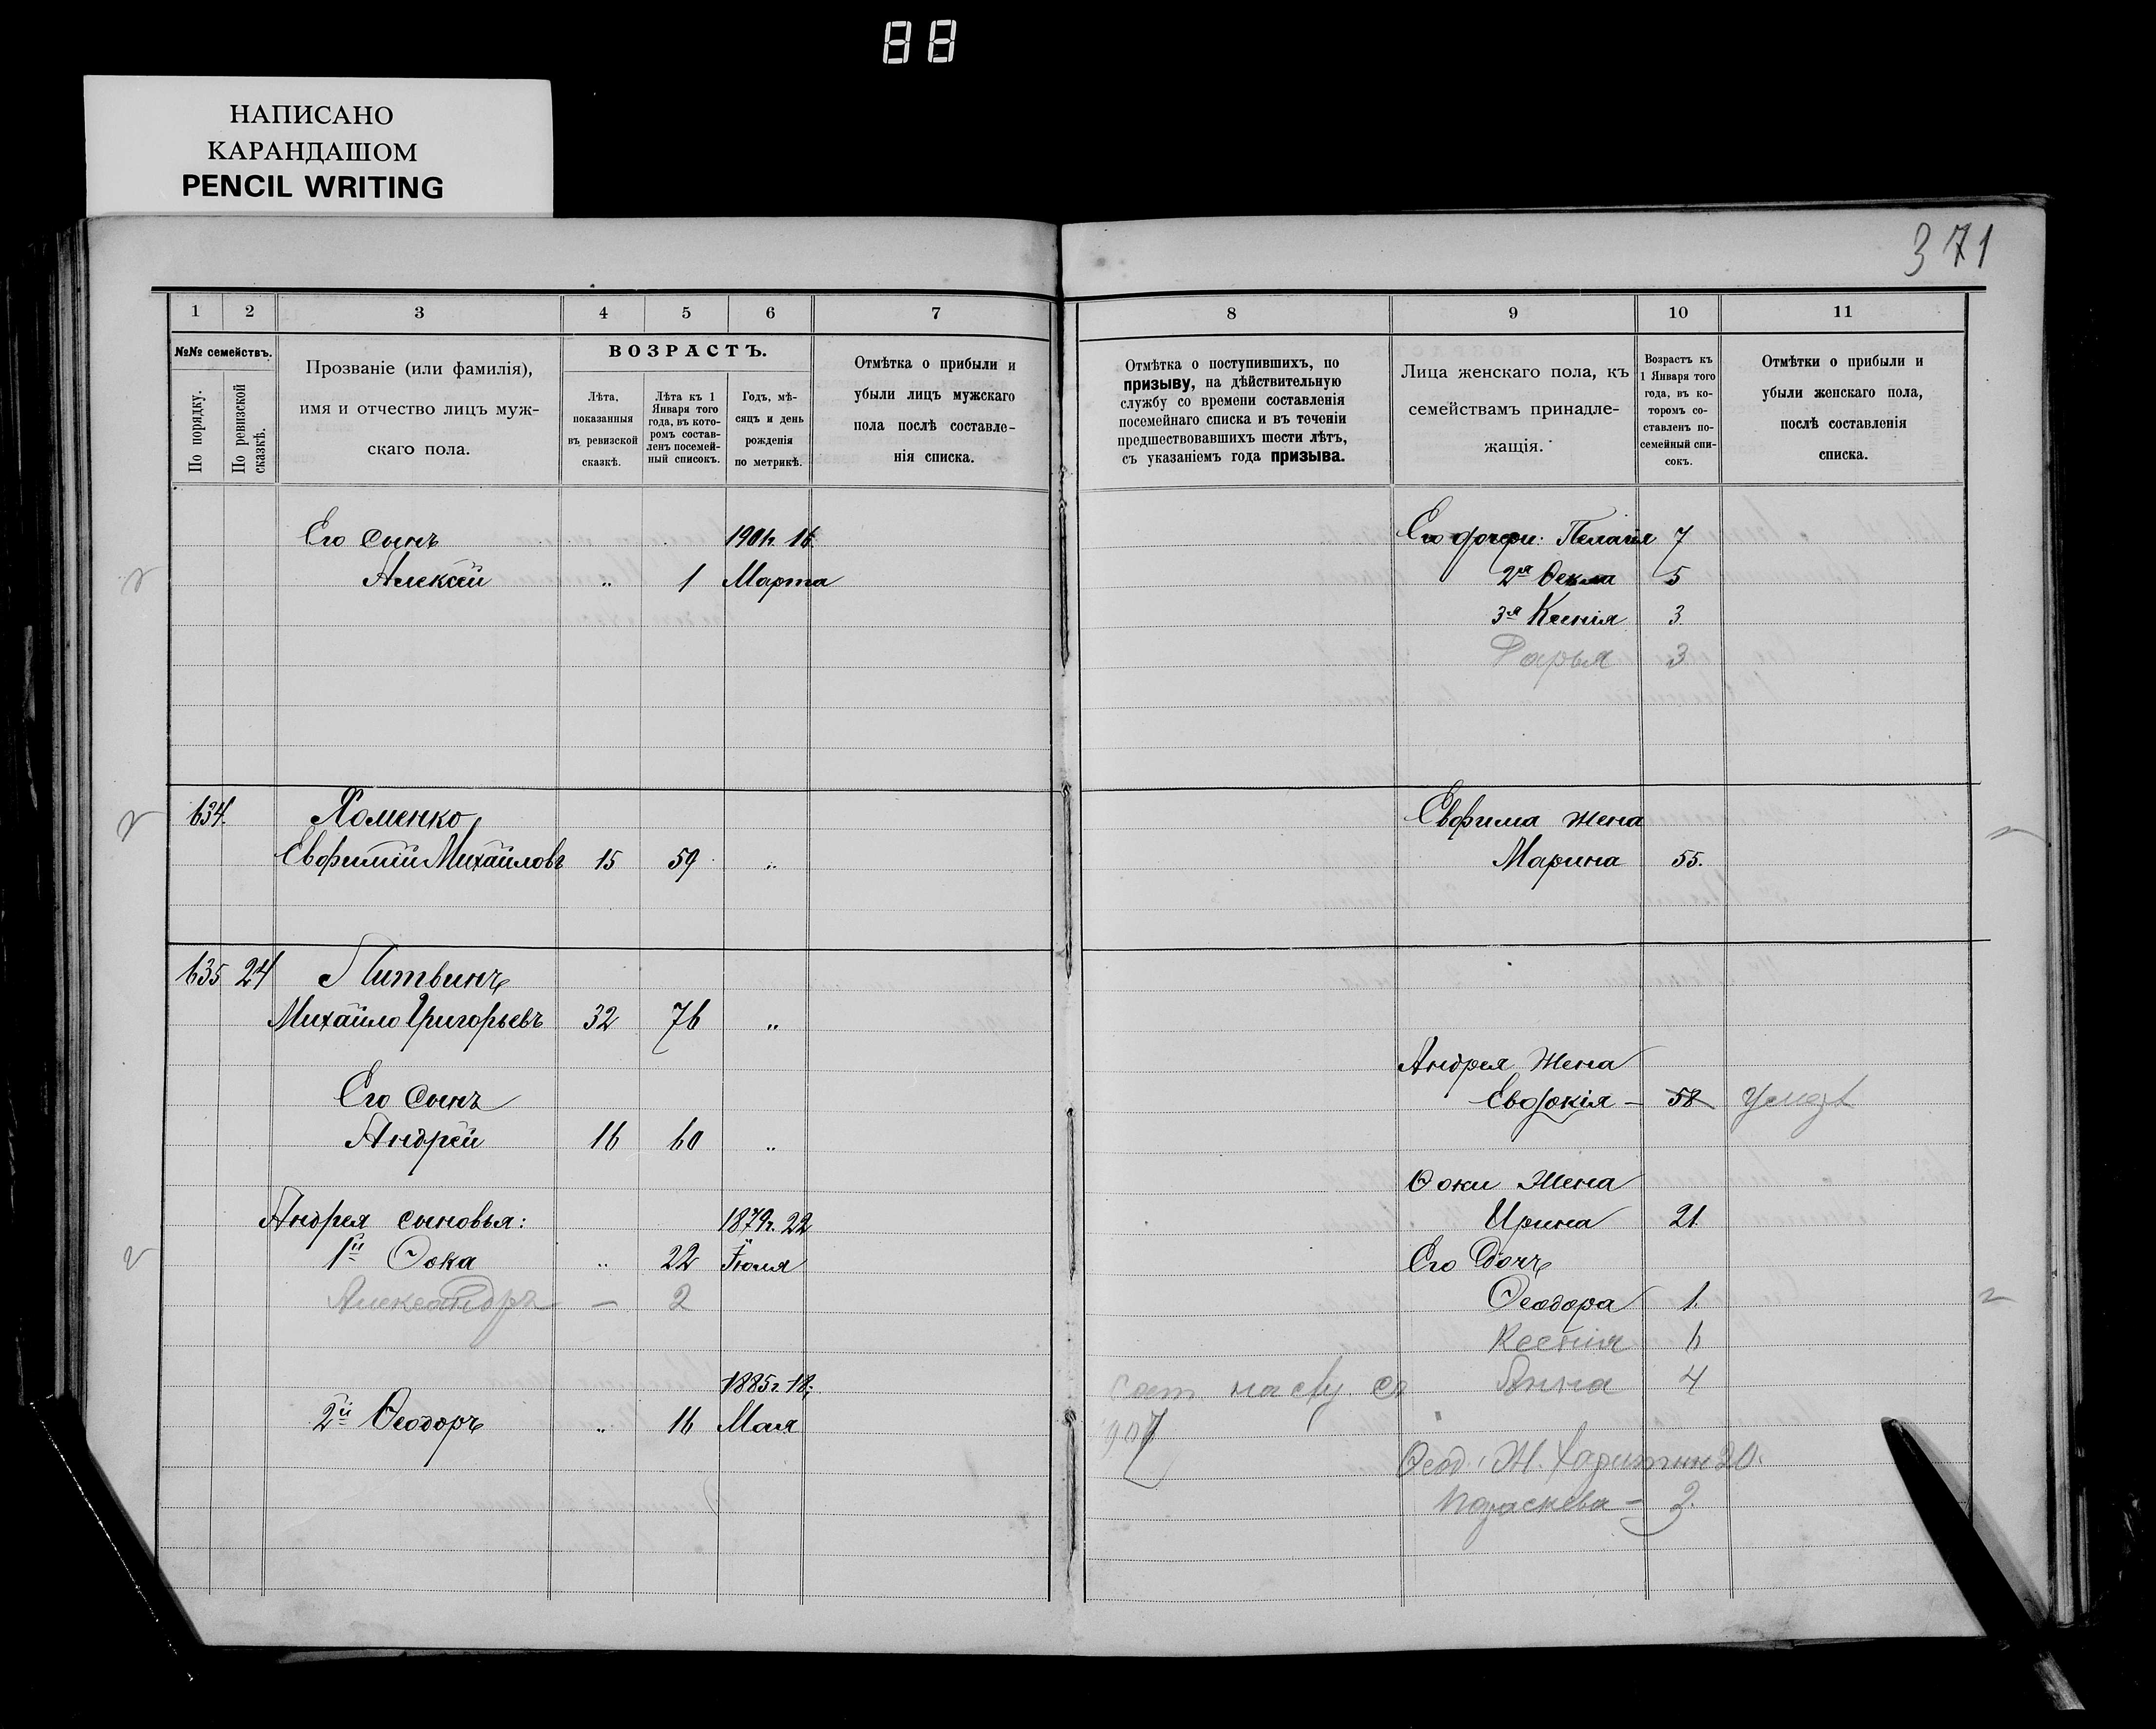 88
НАПИСАНО
КАРАНДАШОМ
PENCIL WRITING
371
1 2 3 4 5 6 7
№№ семействъ.
По порядку.
По ревизской сказкѣ.
Прозваніе (или фамилія),
имя и отчество лицъ муж-
скаго пола.
ВОЗРАСТЪ.
Лѣта,
показанныя
въ ревизской
сказкѣ.
Лѣта къ 1
Января того
года, въ кото-
ромъ состав-
ленъ посемей-
ный списокъ.
Годъ, мѣ-
сяцъ и день
рожденія
по метрикѣ.
Отмѣтка о прибыли и
убыли лицъ мужскаго
пола послѣ составле-
нія списка.
Его сынъ 1901г. 16
Алексѣй " 1 Марта
634. Хоменко
Евфимій Михайловъ 15 59 "
635 24 Литвинъ
Михайло Григорьевъ 32 76 "
Его сынъ
Андрей 16 60 "
Андрея сыновья: 1879г. 22
1й Ѳока " 22 Іюля
Александръ — 2
1885г. 18
2й Ѳеодоръ " 16 Мая
8 9 10 11
Отмѣтка о поступившихъ, по
призыву, на дѣйствительную
службу со времени составленія
посемейнаго списка и въ теченіи
предшествовавшихъ шести лѣтъ,
съ указаніемъ года призыва.
Лица женскаго пола, къ
семействамъ принадле-
жащія.
Возрастъ къ
1 Января того
года, въ ко-
торомъ со-
ставленъ по-
семейный спи-
сокъ.
Отмѣтки о прибыли и
убыли женскаго пола,
послѣ составленія
списка.
Его дочери: Пелагія 7
2я Ѳекла 5
3я Ксенія 3.
3
Евфима жена
Марина 55.
Андрея жена
Евдокія — 58
Ѳоки жена
Ирина 21.
Его дочь
Ѳеодора 1.
Ксенія 6
Анна 4
907
Ѳеод. Ж. Харитин 20.
Параскева — 2.